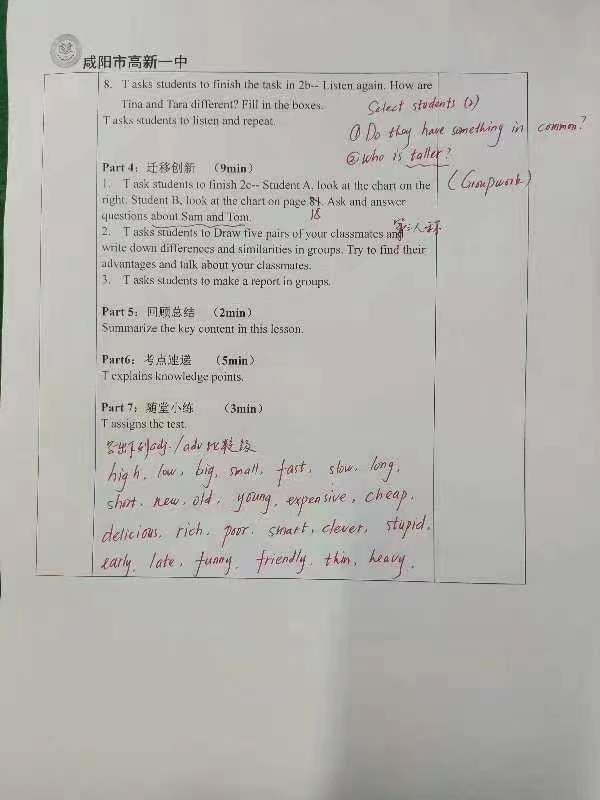 咸阳市高新一中
8. T asks students to finish the task in 2b-- Listen again. How are
Tina and Tara different? Fill in the boxes.
Select students (2)
T asks students to listen and repeat.
① Do they have something in common?
② who is taller?
Part 4：迁移创新 （9min）
1. T ask students to finish 2c-- Student A, look at the chart on the
(Groupwork)
right. Student B, look at the chart on page 81. Ask and answer
questions about Sam and Tom.
18
2. T asks students to Draw five pairs of your classmates and
write down differences and similarities in groups. Try to find their
advantages and talk about your classmates.
3. T asks students to make a report in groups.
Part 5：回顾总结 （2min）
Summarize the key content in this lesson.
Part6：考点速递 （5min）
T explains knowledge points.
Part 7：随堂小练 （3min）
T assigns the test.
写出下列adj./adv比较级
high, low, big, small, fast, slow, long,
short, new, old, young, expensive, cheap,
delicious, rich, poor, smart, clever, stupid,
early, late, funny, friendly, thin, heavy.